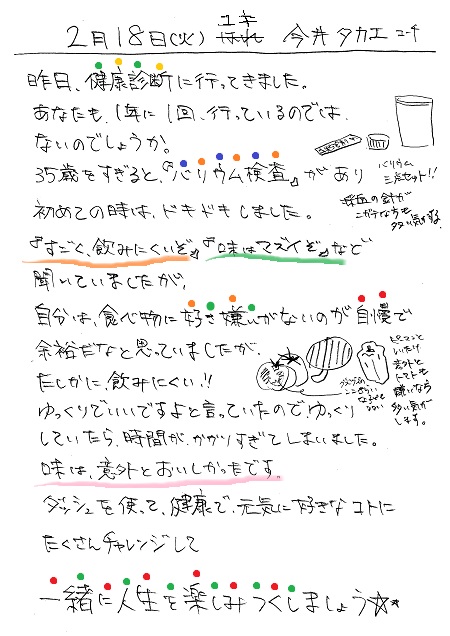 2月18日(火) ユキ 今井タカエ コーチ
昨日、健康診断に行ってきました。
あなたも、1年に1回、行っているのでは、
ないのでしょうか。
35歳をすぎると、『バリウム検査』があり
バリウム
三点セット!!
初めての時は、ドキドキしました。
採血の針が
ニガテな方も
多い気がする。
『すごく、飲みにくいぞ』『味はマズイぞ』など
聞いていましたが、
自分は、食べ物に好き嫌いがないのが自慢で
余裕だなと思っていましたが、
たしかに、飲みにくい!!
ピーマンと
いたけ
意外と
トマトも
嫌いなら
多い気が
します。
ゆっくりでいいですよと言っていたのでゆっくり
していたら、時間が、かかりすぎてしまいました。
味は、意外とおいしかったです。
ダッシュを使って、健康で、元気に好きなコトに
たくさんチャレンジして
一緒に人生を楽しみつくしましょう☆*